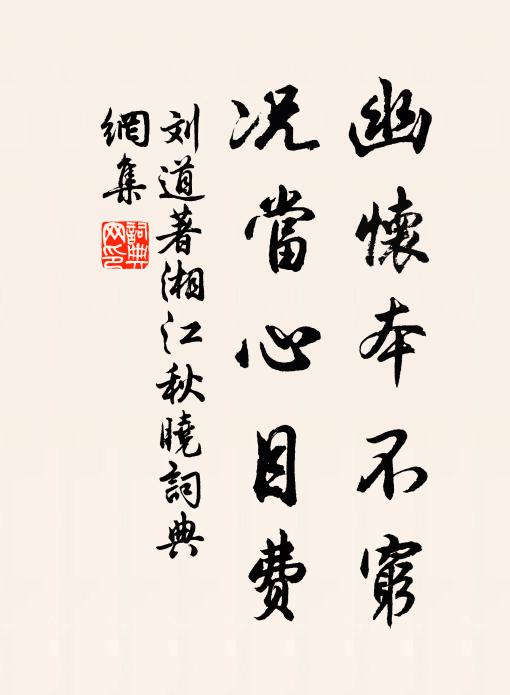 幽懷本不窮
况當心目費
刘道著湘江秋曉詞典
網集
詞典
网印